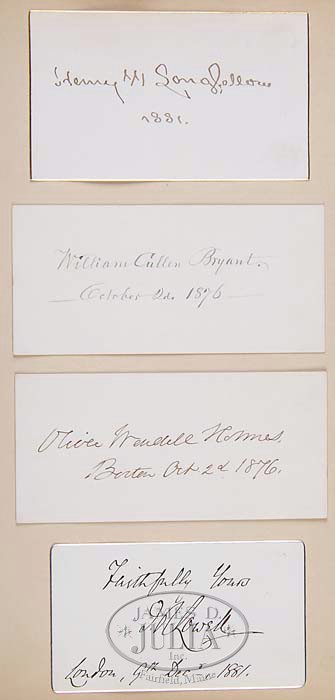 Henry W Longfellow
1881.
William Cullen Bryant.
October 2d. 1876
Oliver Wendell Holmes.
Boston Oct 2d 1876.
Faithfully Yours
JR Lowell
London, 9th Decr 1881.
JAMES D.
JULIA
Inc.
Fairfield, Maine